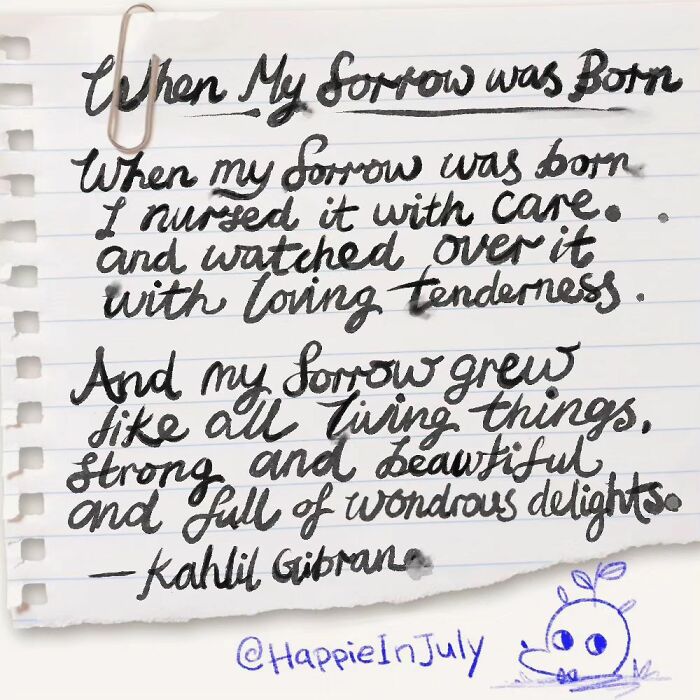 When My Sorrow was Born
When my Sorrow was born
I nursed it with care.
and watched over it
with loving tenderness.
And my Sorrow grew
like all living things,
strong and beautiful
and full of wondrous delights.
— Kahlil Gibran
@HappieInJuly